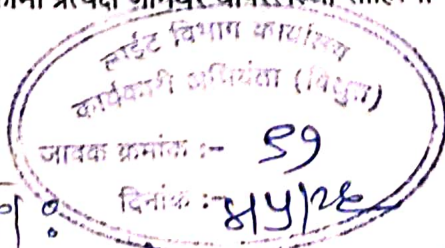 लाईट विभाग कार्यालय
कार्यकारी अभियंता (विद्युत)
जावक क्रमांक :- ९१
दिनांक :- ४/५/२६